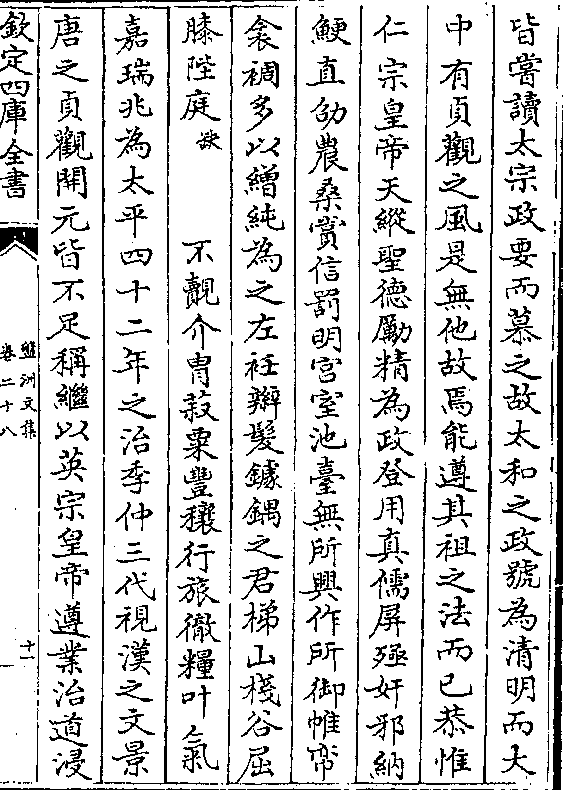 皆嘗讀太宗政要而慕之故太和之政號為清明而大
中有貞觀之風是無他故焉能遵其祖之法而已恭惟
仁宗皇帝天縱聖德勵精為政登用真儒屏殛奸邪納
鯁直劭農桑賞信罰明宫室池臺無所興作所御帷帟
衾裯多以繒純為之左衽辮髮鐻鍝之君梯山棧谷屈
膝陛庭缺　　不覿介胄菽粟豐穰行旅徹糧叶氣
嘉瑞兆為太平四十二年之治季仲三代視漢之文景
唐之貞觀開元皆不足稱繼以英宗皇帝遵業治道浸
欽定四庫全書
盤洲文集
卷二十八
十一